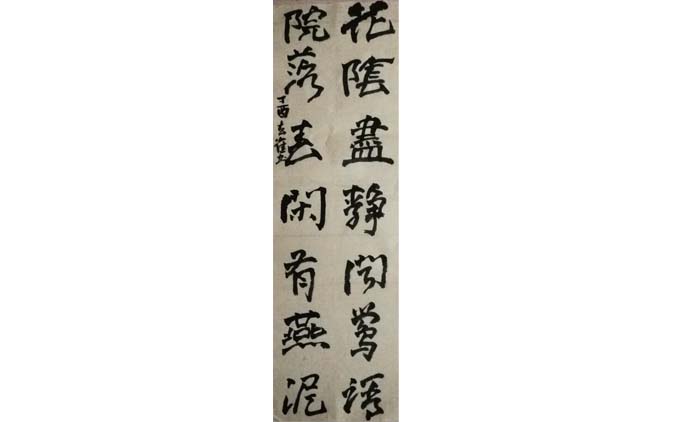 花陰盡靜聞鶯語
院落春閑有燕泥
丁酉春